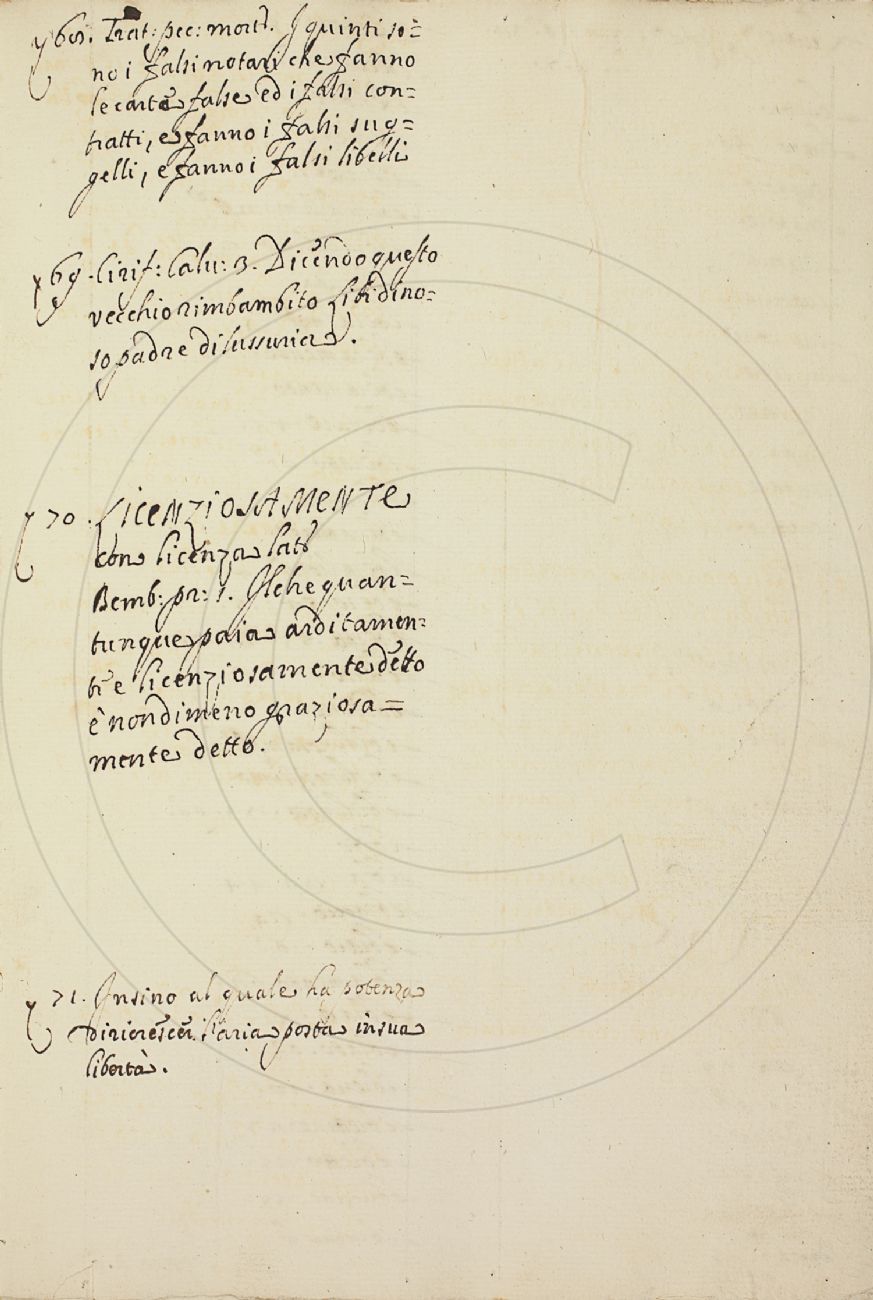 68. Trat: pec: mort:. I quinti so=
no i falsi notari che fanno
le carte false ed i falsi con=
tratti, e fanno i falsi sug=
gelli, e fanno i falsi libelli
69. Cirif: Calu: 3. Dicendo questo
vecchio rimbambito libidino=
so padre di lussuria.
70. LICENZIOSAMENTE
con licenza lat:
Bemb: pr: 1. Il che quan=
tunque paia arditamen=
te e licenziosamente detto
è nondimeno graziosa=
mente detto.
71. Insino al quale ha potenza
di ricrescer l'aria posta in sua
libertà.